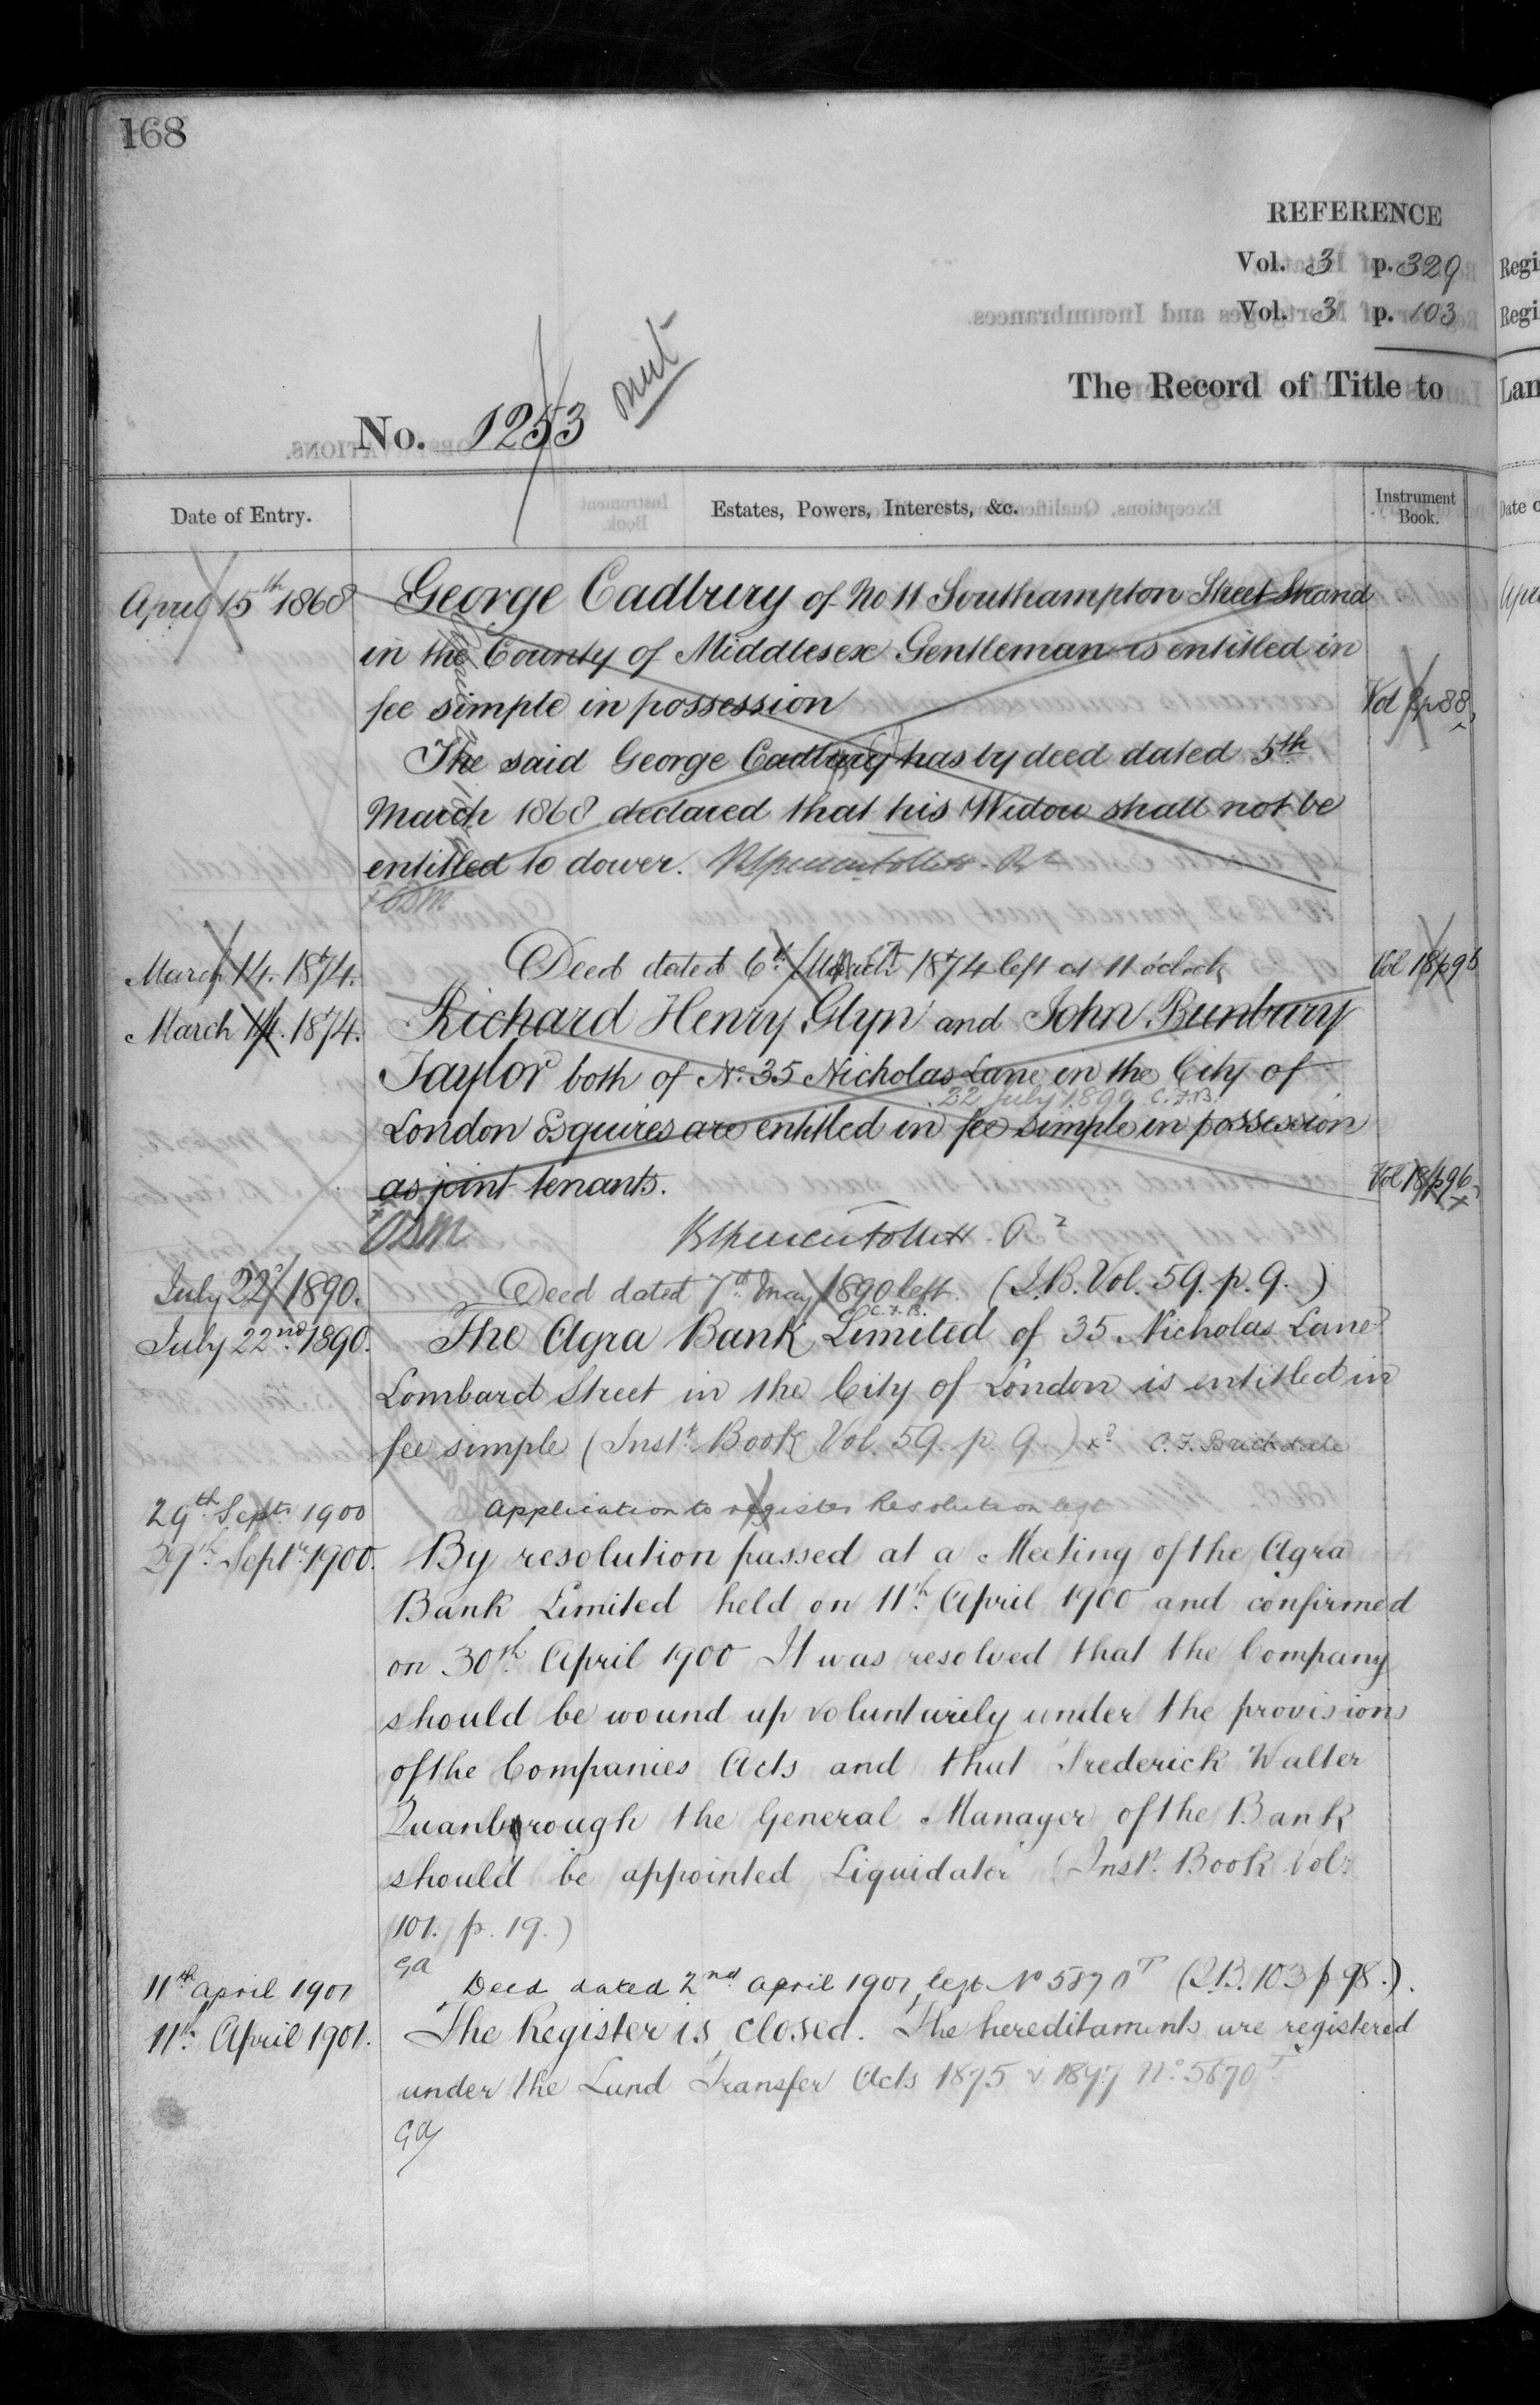 168
REFERENCE
Vol. 3 p. 329
Vol. 3 p. 103
The Record of Title to
No. 1253
Date of Entry.
Estates, Powers, Interests, &c.
Instrument Book.
April 15th 1868 George Cadbury of No 11 Southampton Street Strand
in the County of Middlesex Gentleman is entitled in
fee simple in possession Vol p 88
The said George Cadbury has by deed dated 5th
March 1868 declared that his Widow shall not be
entitled to dower.
March 14. 1874. Deed dated 6th March 1874 left at 11 o'clock Vol 18 p 96
March 14. 1874. Richard Henry Glyn and John Bunbury
Taylor both of No. 35 Nicholas Lane in the City of
22 July 1890 C.F.B.
London Esquires are entitled in fee simple in possession
as joint tenants. Vol 18 p 96
July 22d 1890. Deed dated 7th May 1890 left. (I.B. Vol. 59. p. 9.)
C.F.B.
July 22nd 1890. The Agra Bank Limited of 35 Nicholas Lane
Lombard Street in the City of London is entitled in
fee simple (Instt. Book Vol. 59. p. 9.) C. F. Brickdale
29th Sept. 1900 Application to register Resolution left
29th Septr. 1900. By resolution passed at a Meeting of the Agra
Bank Limited held on 11th April 1900 and confirmed
on 30th April 1900 It was resolved that the Company
should be wound up voluntarily under the provisions
of the Companies Acts and that Frederick Walter
Quanbrough the General Manager of the Bank
should be appointed Liquidator (Instt. Book Vol.
101. p. 19.)
GA
11th April 1901 Deed dated 2nd April 1901 left No 5870T (I.B. 103 p 98.).
11th April 1901. The Register is closed. The hereditaments are registered
under the Land Transfer Acts 1875 & 1897 No. 5870T
GA
Regi
Regi
Lan
Date o